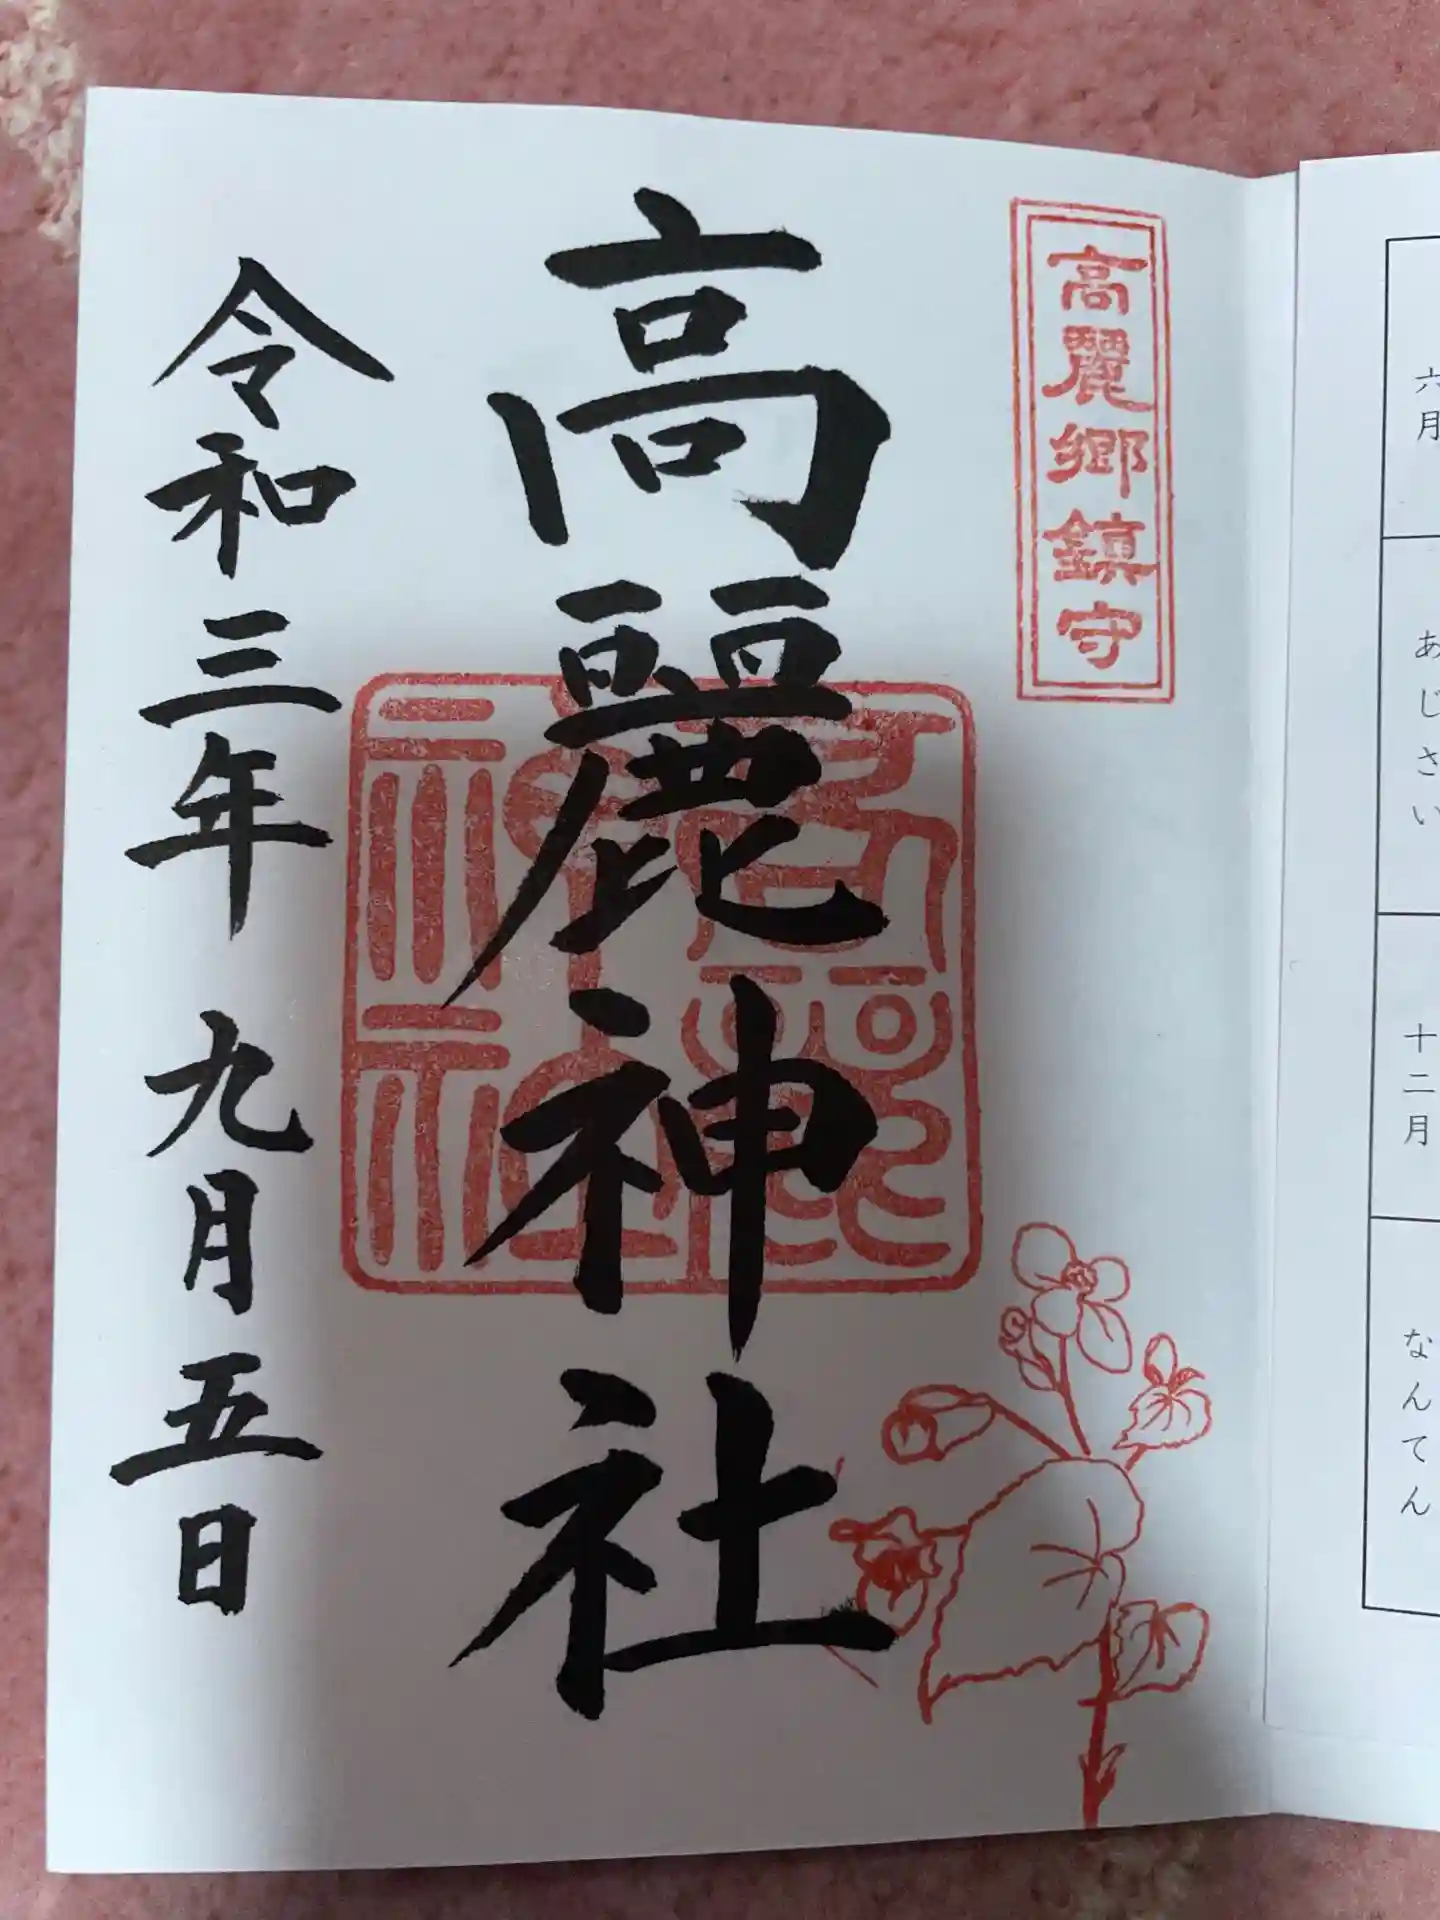 高麗郷鎮守
高麗神社
高麗神社
令和三年 九月五日
六月
あじさい
十二月
なんてん